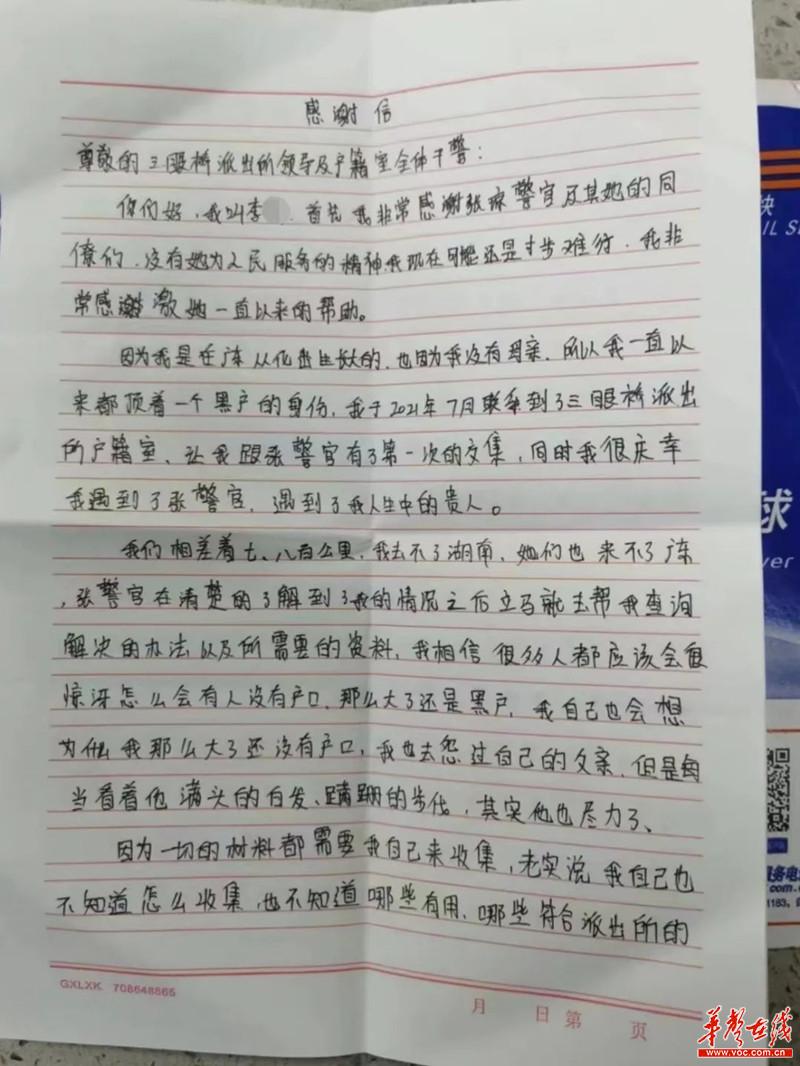 感谢信
尊敬的三眼桥派出所领导及户籍室全体干警：
你们好，我叫李 . 首先我非常感谢张琼警官及其她的同
僚们，没有她为人民服务的精神我现在可能还是寸步难行．我非
常感谢激她一直以来的帮助。
因为我是在广东从化出生长大的，也因为我没有母亲．所以我一直以
来都顶着一个黑户的身份，我于2021年7月联系到了三眼桥派出
所户籍室、让我跟张警官有了第一次的交集，同时我很庆幸
我遇到了张警官，遇到了我人生中的贵人。
我们相差着七、八百公里，我去不了湖南，她们也来不了广东
，张警官在清楚的了解到了我的情况之后立马就去帮我查询
解决的办法以及所需要的资料，我相信很多人都应该会很
惊讶怎么会有人没有户口，那么大了还是黑户，我自己也会想
为什么我那么大了还没有户口，我也去怨过自己的父亲，但是每
当看着他满头的白发、蹒跚的步伐，其实他也尽力了、
因为一切的材料都需要我自己来收集，老实说我自己也
不知道怎么收集，也不知道哪些有用，哪些符合派出所的
GXLXK 708648865
月 日第 页
快
IL S
球
ver
服务电
com.c
1183,
华声在线
www.voc.com.cn